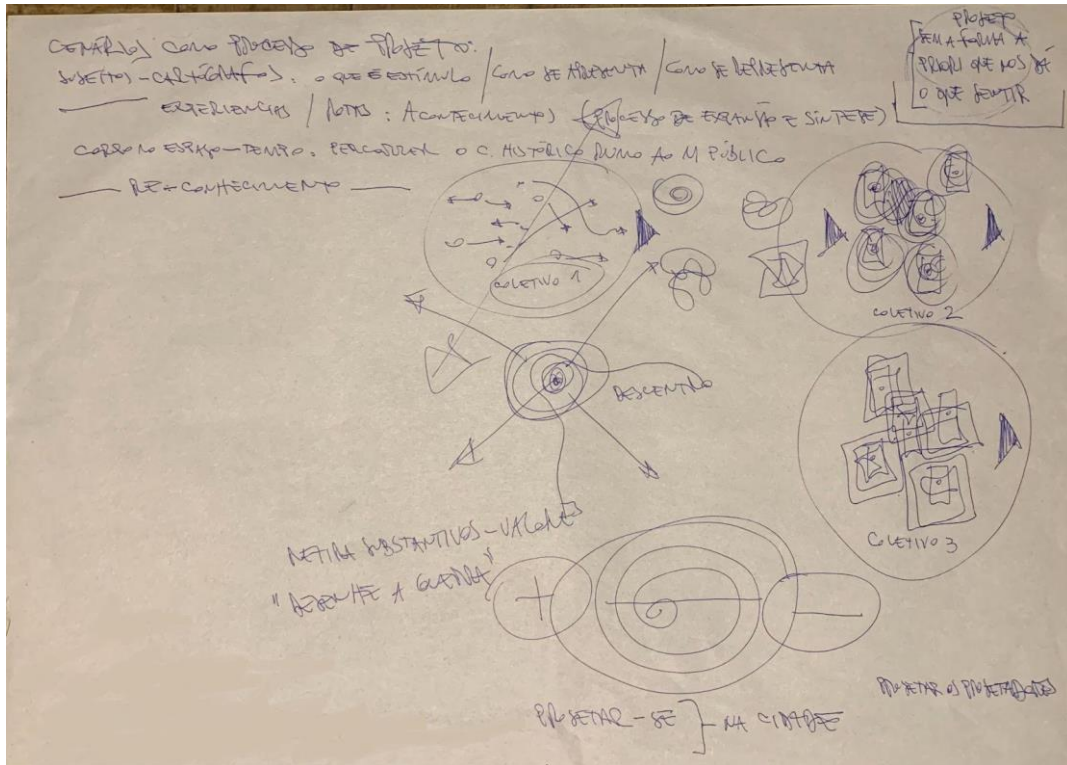 CENÁRIOS COMO PROCESSO DE PROJETO:
SUJEITOS-CARTÓGRAFOS: O QUE É ESTÍMULO / COMO SE APRESENTA / COMO SE REPRESENTA
EXPERIENCIAS / : ACONTECIMENTO) (PROCESSO DE EXPANSÃO E SÍNTESE)
CORPO NO ESPAÇO-TEMPO. PERCORRER O C. HISTÓRICO RUMO AO M PÚBLICO
RE-CONHECIMENTO
PROJETO
SEM A FORMA A
PRIORI QUE NOS DÁ
O QUE SENTIR
COLETIVO 1
COLETIVO 2
DESCENTRO
COLETIVO 3
RETIRA SUBSTANTIVOS-VALORES
"DESENHE A GUERRA"
+
—
PROJETAR-SE } NA CIDADE
PROJETAR OS PROJETADORES